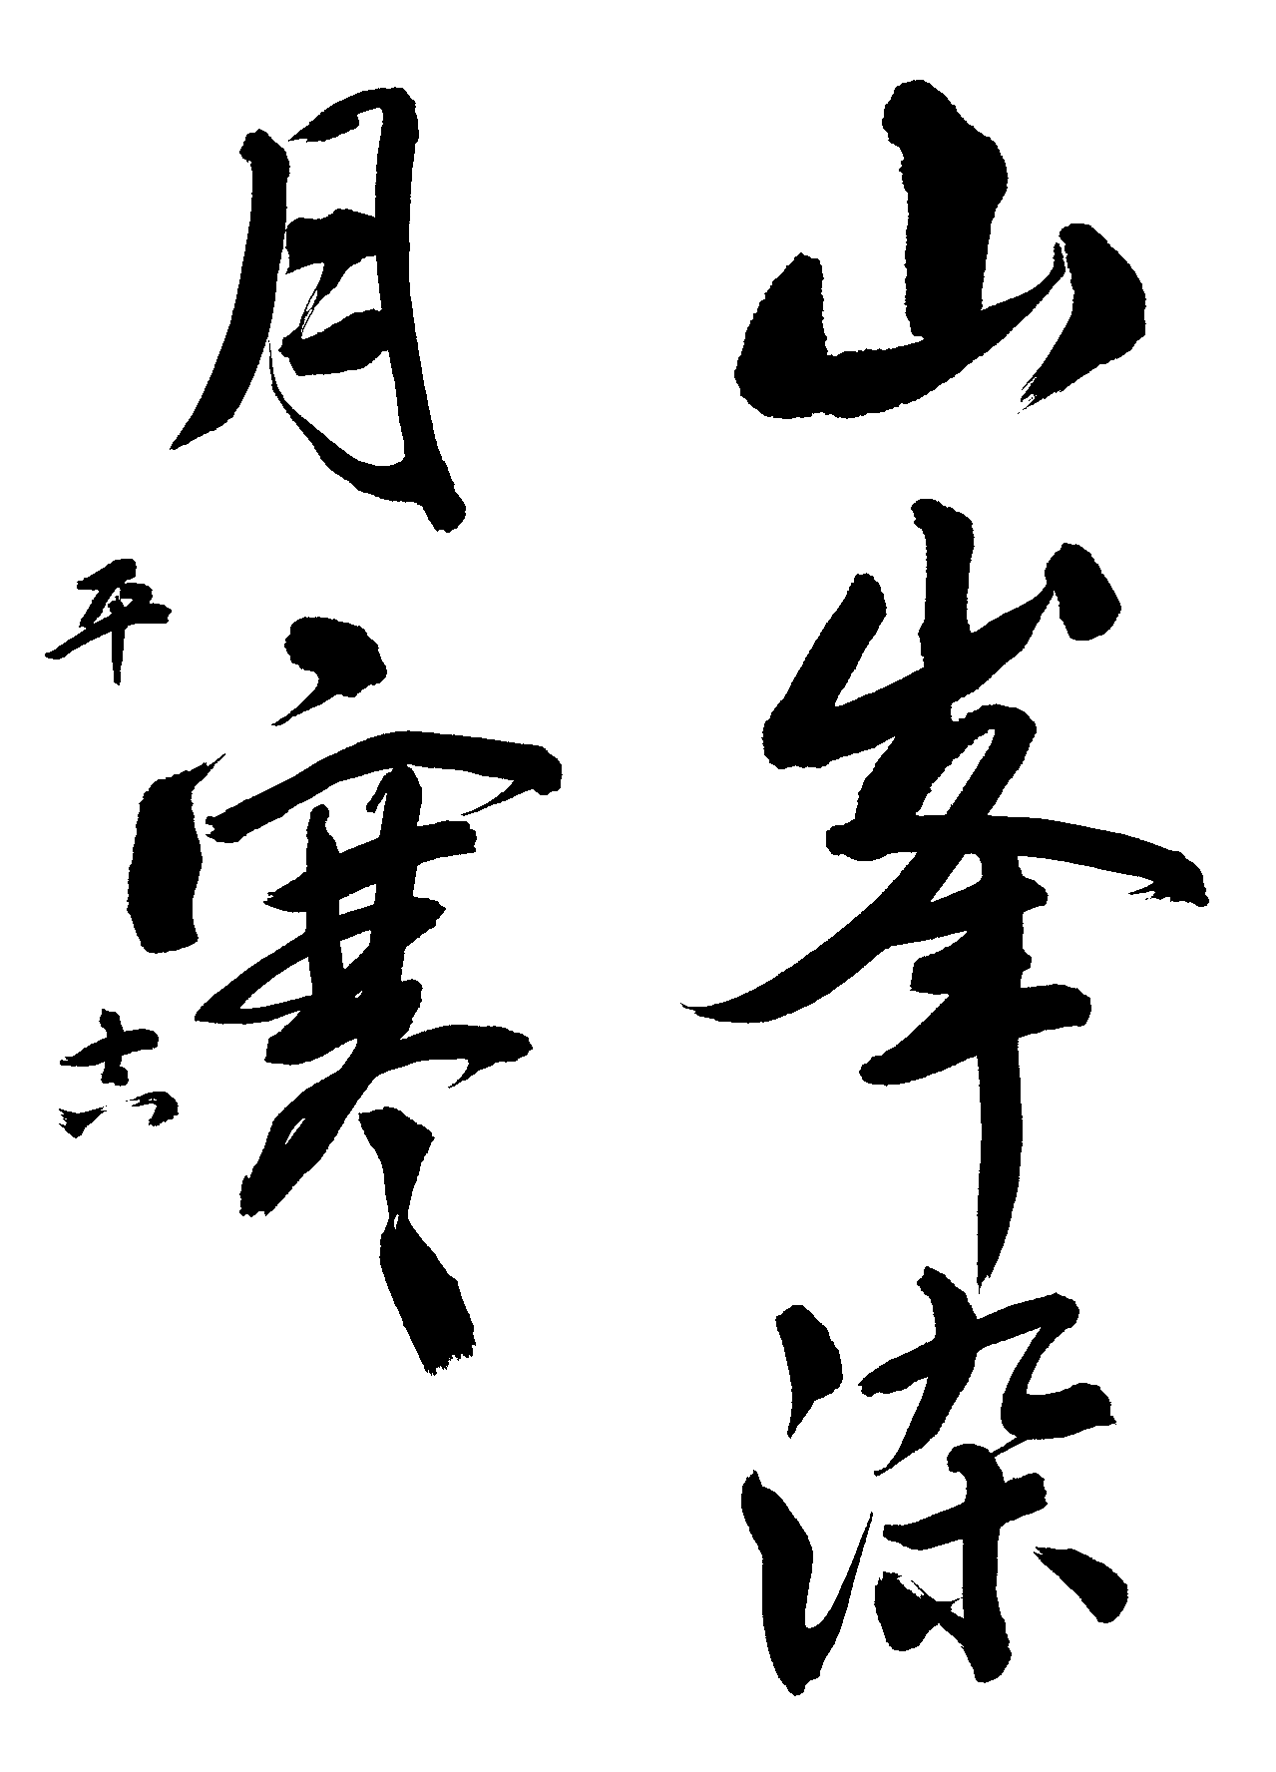 山峯染
月寒
平六